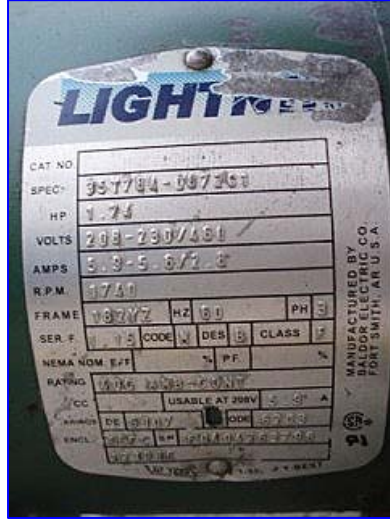 LIGHTNIN
CAT NO
SPEC. 35T784-0872G1
HP 1.74
VOLTS 208-230/460
AMPS 5.9-5.6/2.8
R.P.M. 1740
FRAME 182YZ HZ 60 PH 3
SER. F. 1.15 CODE DES B CLASS F
NEMA NOM. EFF % P.F. %
RATING 40C AMB-CONT
CC USABLE AT 208V 5.9 A
DE ODE
ENCL. SN
MANUFACTURED BY
BALDOR ELECTRIC CO.
FORT SMITH, AR U.S.A.